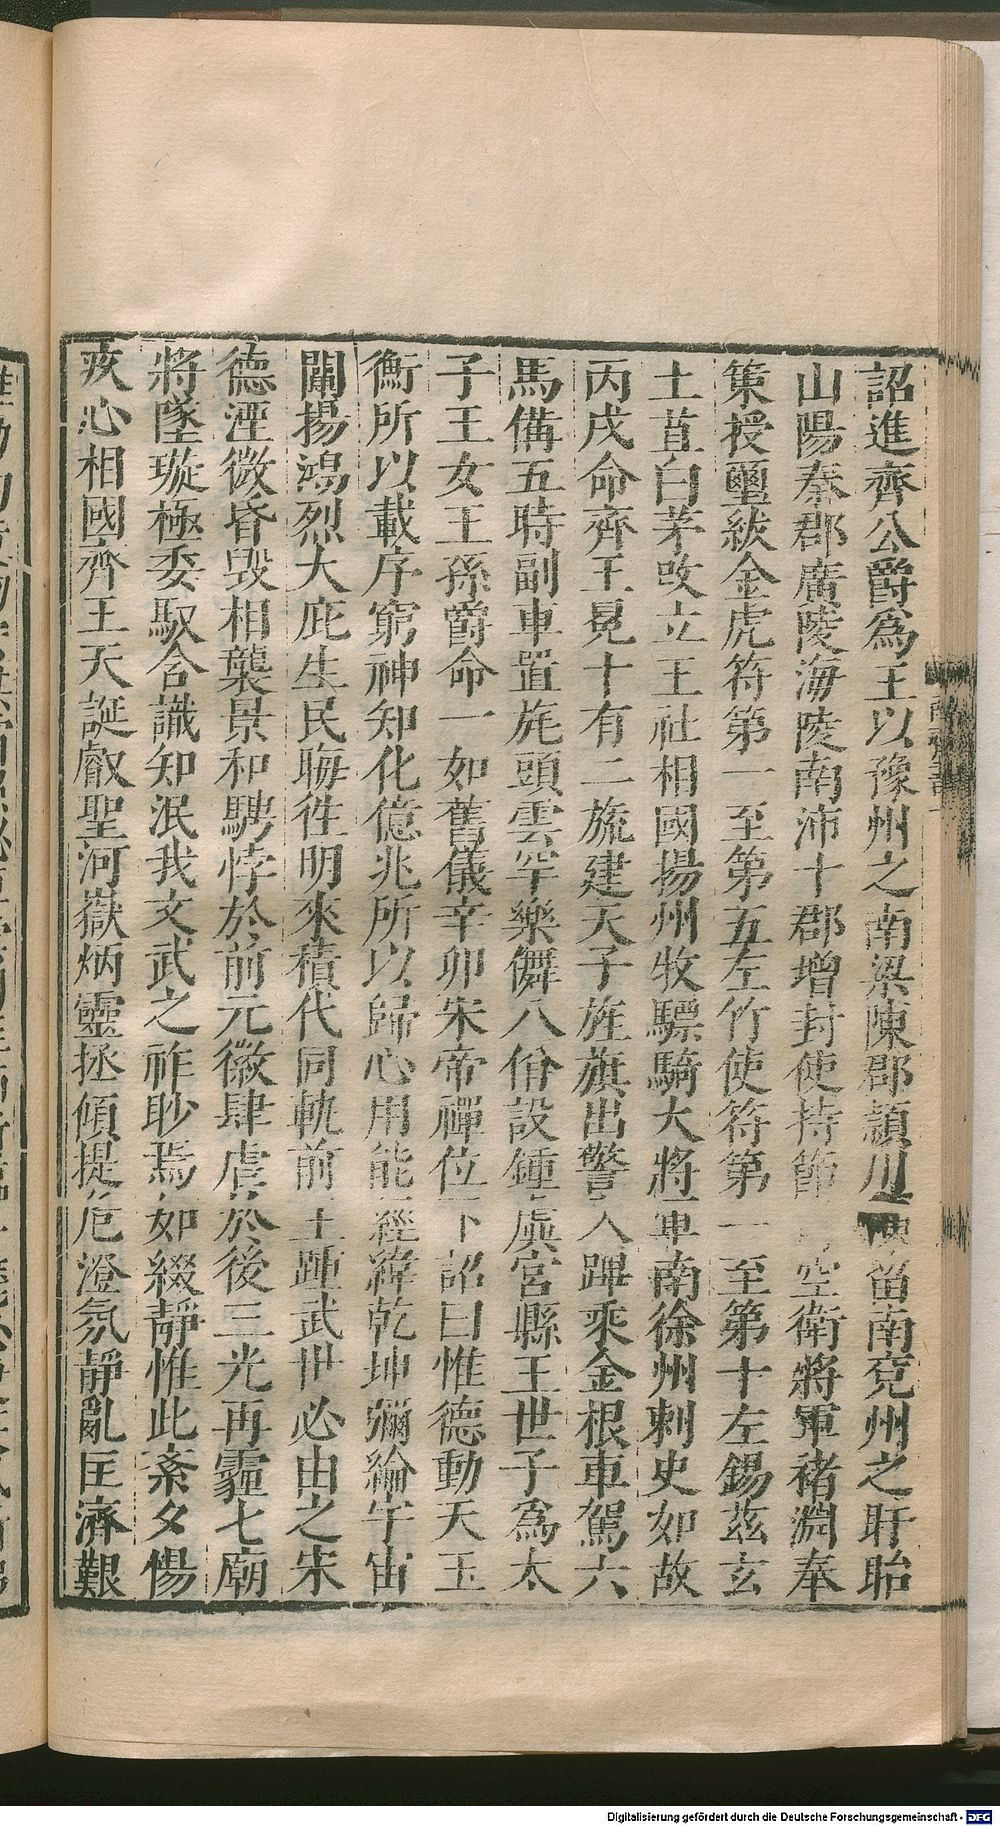 詔進齊公爵爲王以豫州之南梁陳郡潁川陳留南兗州之盱眙
山陽秦郡廣陵海陵南沛十郡增封使持節司空衛將軍褚淵奉
策授璽紱金虎符第一至第五左竹使符第一至第十左錫茲玄
土苴白茅攺立王社相國揚州牧驃騎大將軍南徐州刺史如故
丙戌命齊王冕十有二旒建天子旌旗出警入蹕乘金根車駕六
馬備五時副車置旄頭雲罕樂儛八佾設鍾虡宮縣王世子爲太
子王女王孫爵命一如舊儀辛卯宋帝禪位下詔曰惟德動天玉
衡所以載序窮神知化億兆所以歸心用能經緯乾坤彌綸宇宙
闡揚鴻烈大庇生民晦徃明來積代同軌前王踵武世必由之宋
德湮微昏毁相襲景和騁悖於前元徽肆虐於後三光再霾七廟
將墜璇極委馭含識知泯我文武之祚眇焉如綴靜惟此紊夕惕
疚心相國齊王天誕叡聖河嶽炳靈拯傾提危澄氛靜亂匡濟艱
Digitalisierung gefördert durch die Deutsche Forschungsgemeinschaft - DFG